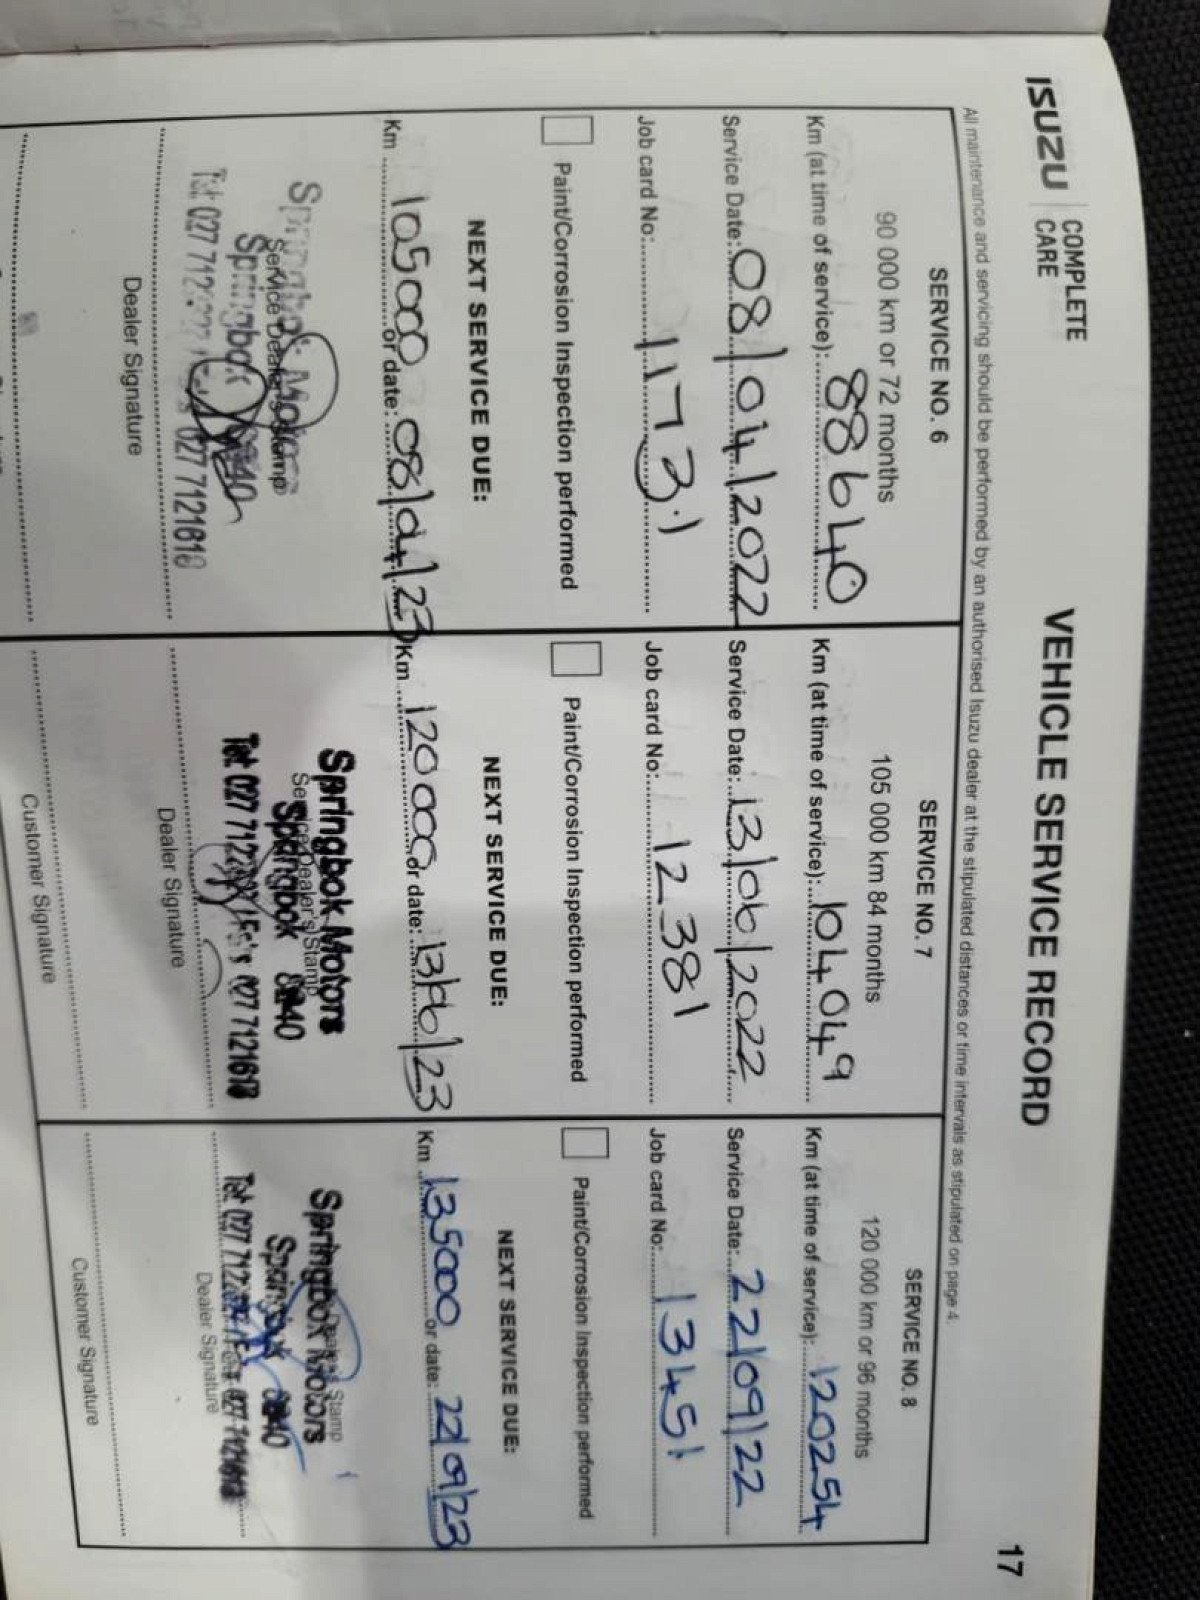 ISUZU COMPLETE CARE
VEHICLE SERVICE RECORD
17
All maintenance and servicing should be performed by an authorised Isuzu dealer at the stipulated distances or time intervals as stipulated on page 4.
SERVICE NO. 6
90 000 km or 72 months
Km (at time of service): 88640
Service Date: 08/04/2022
Job card No: 11731
Paint/Corrosion Inspection performed
NEXT SERVICE DUE:
Km 105000 or date: 08/04/23
Springbok Motors
Service Dealer's Stamp
Springbok 8240
Tel: 027 712 027 7121610
Dealer Signature
SERVICE NO. 7
105 000 km 84 months
Km (at time of service): 104049
Service Date: 13/06/2022
Job card No: 12381
Paint/Corrosion Inspection performed
NEXT SERVICE DUE:
Km 120000 or date: 13/06/23
Springbok Motors
Service Dealer's Stamp
Springbok 8240
Tel: 027 712 027 7121613
Dealer Signature
Customer Signature
SERVICE NO. 8
120 000 km or 96 months
Km (at time of service): 120254
Service Date: 22/09/22
Job card No: 13451
Paint/Corrosion Inspection performed
NEXT SERVICE DUE:
Km 135000 or date: 22/09/23
Dealer's Stamp
Springbok Motors
Springbok 8240
Tel: 027 712 027
Dealer Signature
Customer Signature